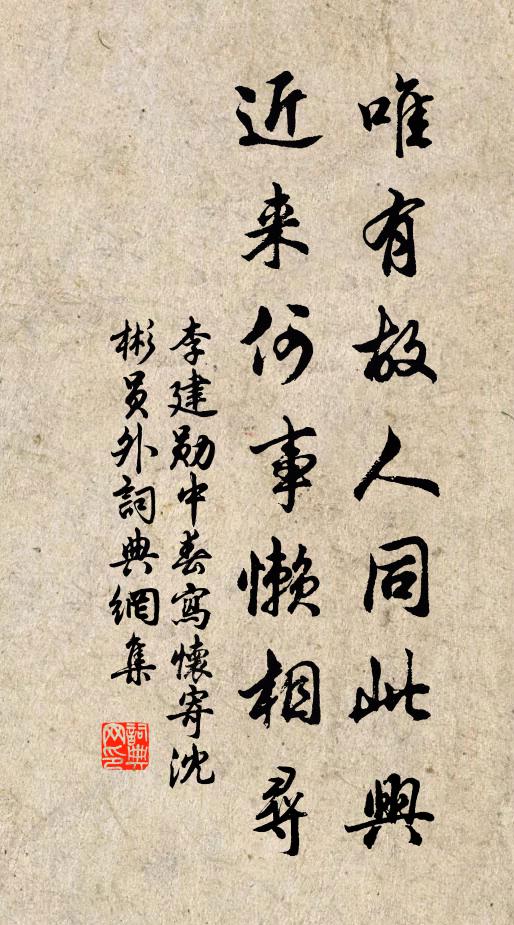 唯有故人同此興
近来何事懒相尋
李建勋中春寫懷寄沈
彬员外詞典網集
詞典网印